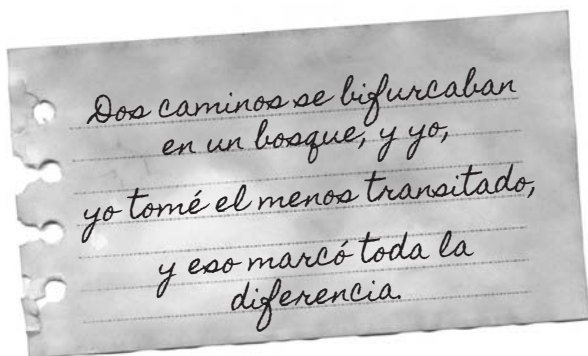 Dos caminos se bifurcaban
en un bosque, y yo,
yo tomé el menos transitado,
y eso marcó toda la
diferencia.